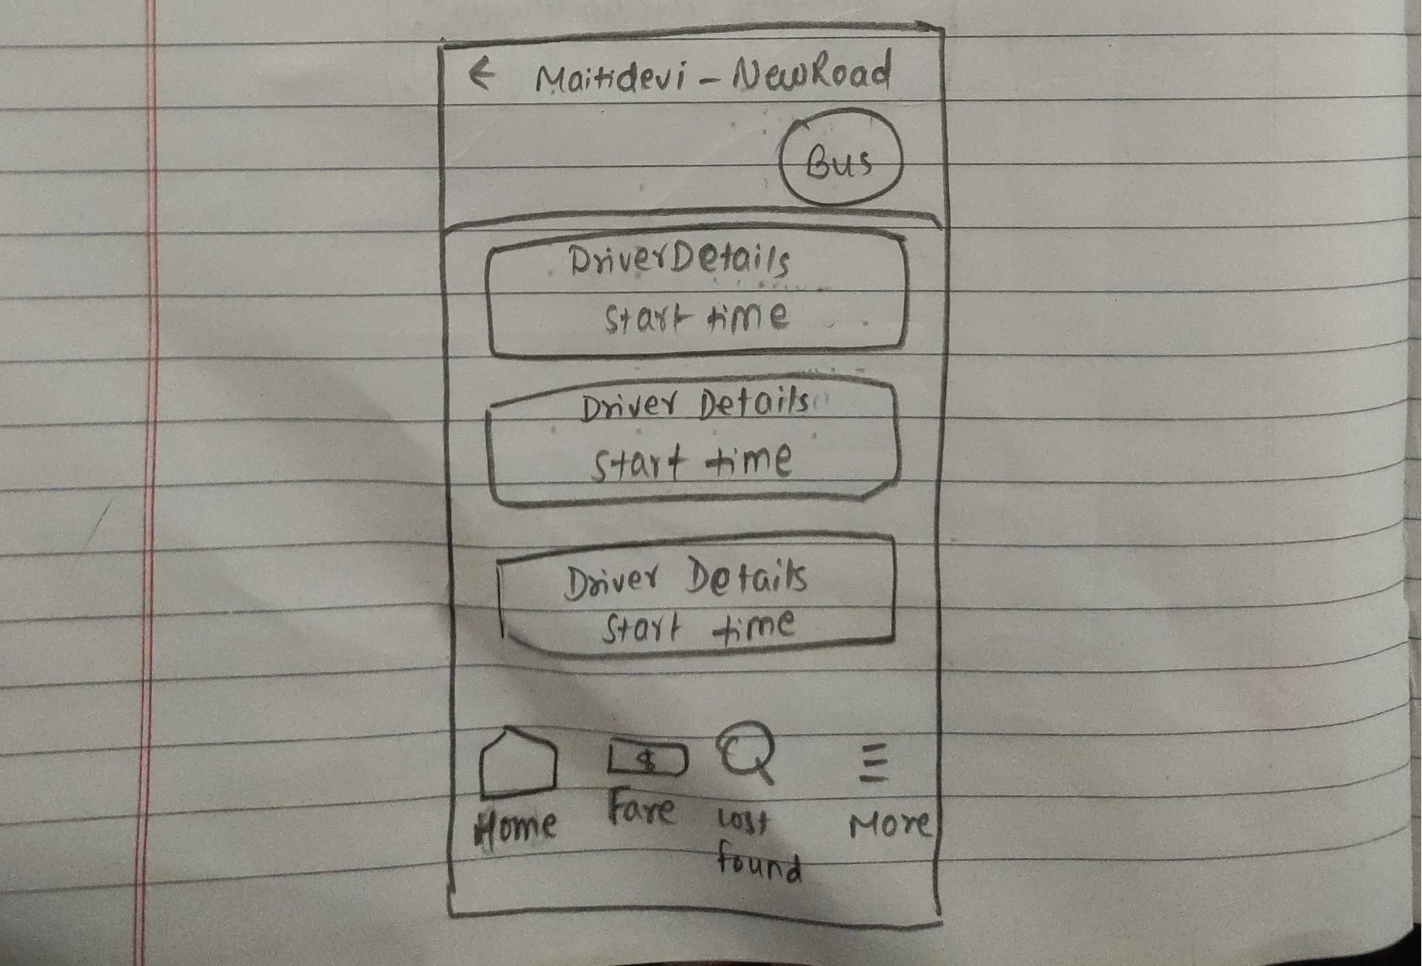 ← Maitidevi - NewRoad
Bus
Driver Details
start time
Driver Details
start time
Driver Details
start time
$
Home
Fare
Lost
found
More